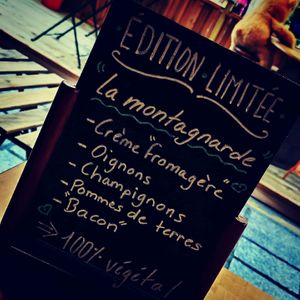 ÉDITION LIMITÉE
"la montagnarde"
- Crème "Fromagère"
- Oignons
- Champignons
- Pommes de terres
- "Bacon"
→ 100% végétal